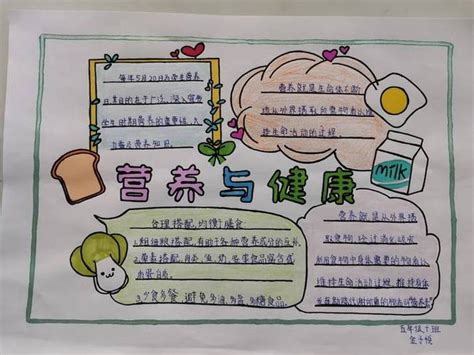 每年5月20日为学生营养
日,其目的在于广泛、深入宣传
学生时期营养的重要性,大
力普及营养知识。
营养就是生命体不断
从外界摄取所需物质以维
持生命活动的过程。
MILK
营养与健康
合理搭配,均衡膳食
1.粗细粮搭配,有助于各种营养成分的互补
2.荤素搭配,
3.少食多餐,避免多油、多盐、多糖食品。
营养就是从外界摄
取食物,经过消化吸收
利用食物中身体需要的物质以
维持生命活动过程,
五年级十班